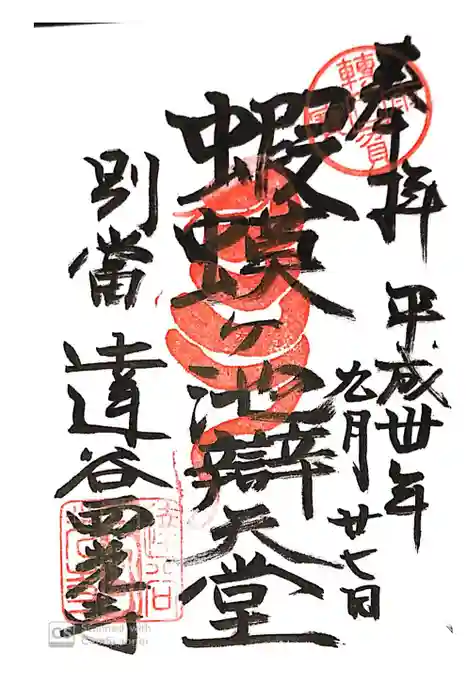 奉拝
平成卅年
九月廿七日
蝦蟆ヶ池辯天堂
別當
達谷西光寺
CS Scanned with
CamScanner